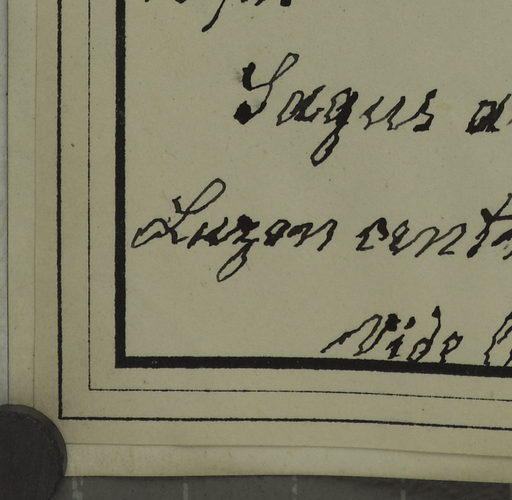 Sagus a
Luzon cent
Vide